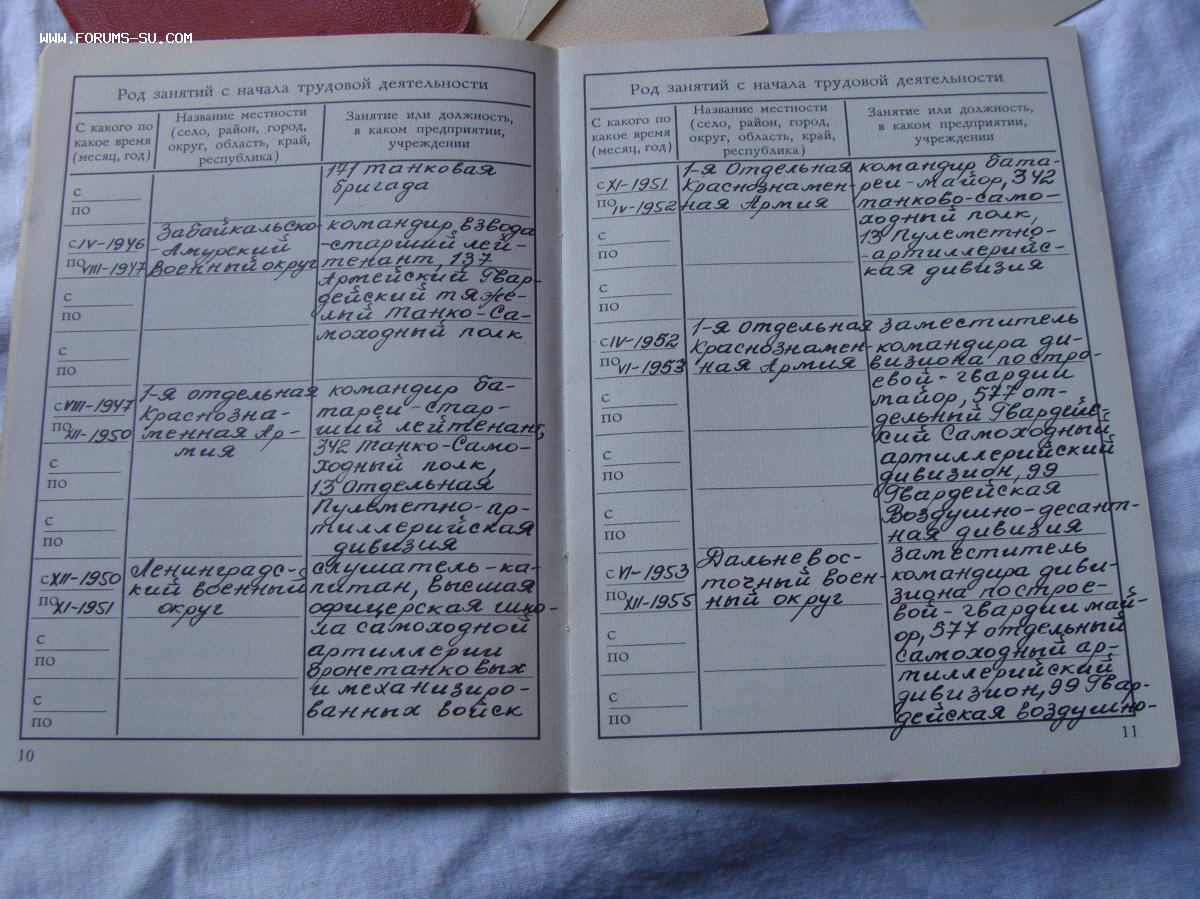 WWW.FORUMS-SU.COM
Род занятий с начала трудовой деятельности
С какого по
какое время
(месяц, год)
Название местности
(село, район, город,
округ, область, край,
республика)
Занятие или должность,
в каком предприятии,
учреждении
с
по
141 танковая
бригада
с IV-1946
по VIII-1947
Забайкальско-
-Амурский
военный округ
командир взвода
-старший лей-
тенант, 137
Армейский Гвар-
дейский тяже-
лый танко-Са-
моходный полк
с
по
с
по
с VIII-1947
по XII-1950
1-я отдельная
Краснозна-
менная Ар-
мия
командир ба-
тареи-стар-
ший лейтенант,
342 танко-Само-
ходный полк,
13 отдельная
Пулеметно-ар-
тиллерийская
дивизия
с
по
с
по
с XII-1950
по XI-1951
Ленинградс-
кий военный
округ
слушатель-ка-
питан, высшая
офицерская шко-
ла самоходной
артиллерии
бронетанковых
и механизиро-
ванных войск
с
по
с
по
10
Род занятий с начала трудовой деятельности
С какого по
какое время
(месяц, год)
Название местности
(село, район, город,
округ, область, край,
республика)
Занятие или должность,
в каком предприятии,
учреждении
с XI-1951
по IV-1952
1-я Отдельная
Краснознамен-
ная Армия
командир бата-
реи-майор, 342
танково-само-
ходный полк,
13 Пулеметно-
-артиллерийс-
кая дивизия
с
по
с
по
с IV-1952
по VI-1953
1-я отдельная
Краснознамен-
ная Армия
заместитель
командира ди-
визиона постро-
евой-гвардии
майор, 577 от-
дельный Гвардейс-
кий Самоходный
артиллерийский
дивизион, 99
Гвардейская
Воздушно-десант-
ная дивизия
с
по
с
по
с
по
с VI-1953
по XII-1955
Дальневос-
точный воен-
ный округ
заместитель
командира диви-
зиона построе-
вой-гвардии май-
ор, 577 отдельный
самоходный ар-
тиллерийский
дивизион, 99 Гвар-
дейская воздушно-
с
по
с
по
11